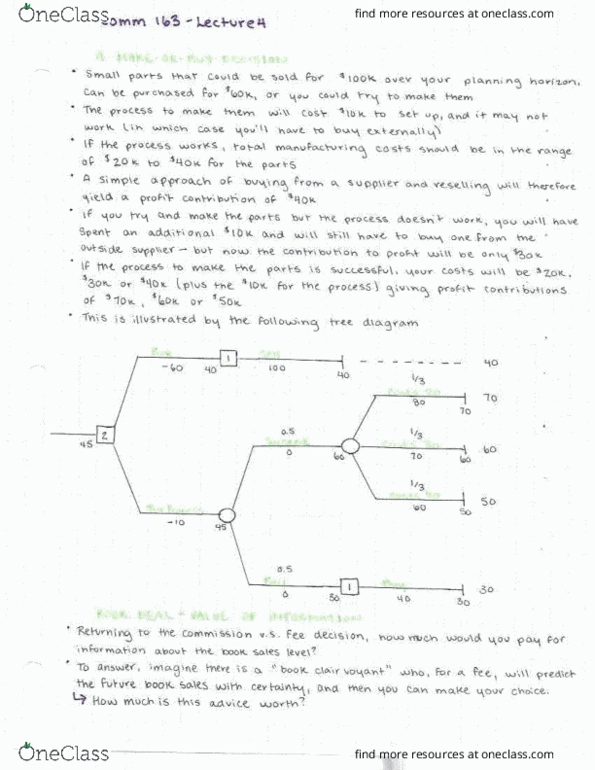 OneClass
find more resources at oneclass.com
Comm 163 - Lecture 4
A MAKE-OR-BUY DECISION
• Small parts that could be sold for $100K over your planning horizon,
can be purchased for $60K, or you could try to make them
• The process to make them will cost $10K to set up, and it may not
work (in which case you'll have to buy externally)
• If the process works, total manufacturing costs should be in the range
of $20K to $40K for the parts
• A simple approach of buying from a supplier and reselling will therefore
yield a profit contribution of $40K
• If you try and make the parts but the process doesn't work, you will have
spent an additional $10K and will still have to buy one from the
outside supplier - but now the contribution to profit will be only $30K
• If the process to make the parts is successful, your costs will be $20K,
$30K or $40K (plus the $10K for the process) giving profit contributions
of $70K, $60K or $50K
• This is illustrated by the following tree diagram
Buy 1 Sell 40
-60 40 100 40
1/3
80 70
70
2
45
0.5 1/3
0 60 70 60 60
1/3
50
60 50
-10 45
0.5
Fail 1 Buy 30
0 30 40 30
BOOK DEAL - VALUE OF INFORMATION
• Returning to the commission v.s. fee decision, how much would you pay for
information about the book sales level?
• To answer, imagine there is a "book clair voyant" who, for a fee, will predict
the future book sales with certainty, and then you can make your choice.
↳ How much is this advice worth?
OneClass
find more resources at oneclass.com